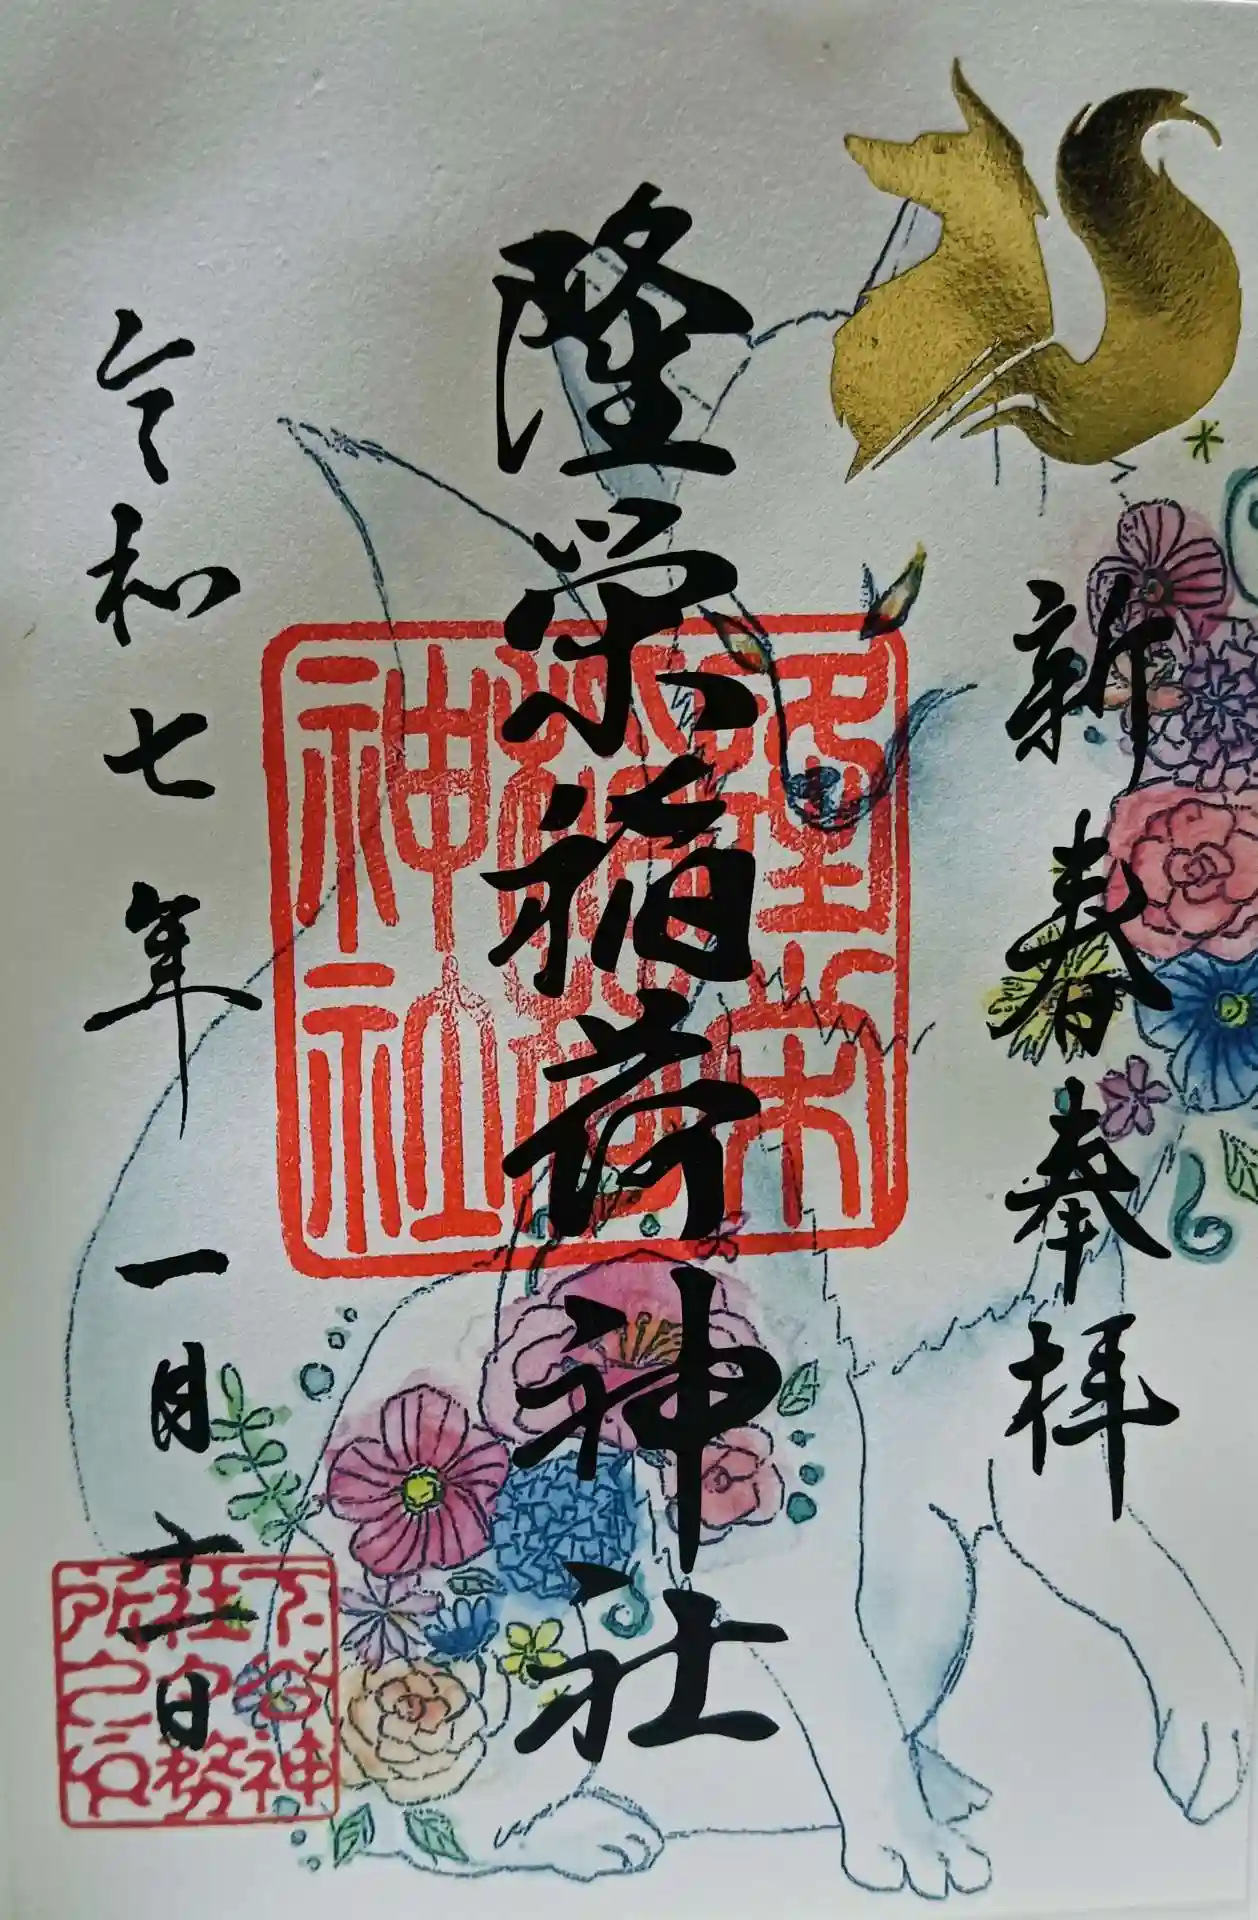 新春奉拝
隆栄稲荷神社
隆栄
稲荷
神社
令和七年一月十一日
下谷神
社社務
所之印